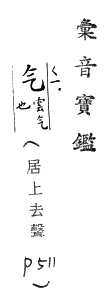 彙音寶鑑
气
雲气
也
(居上去聲
P511)